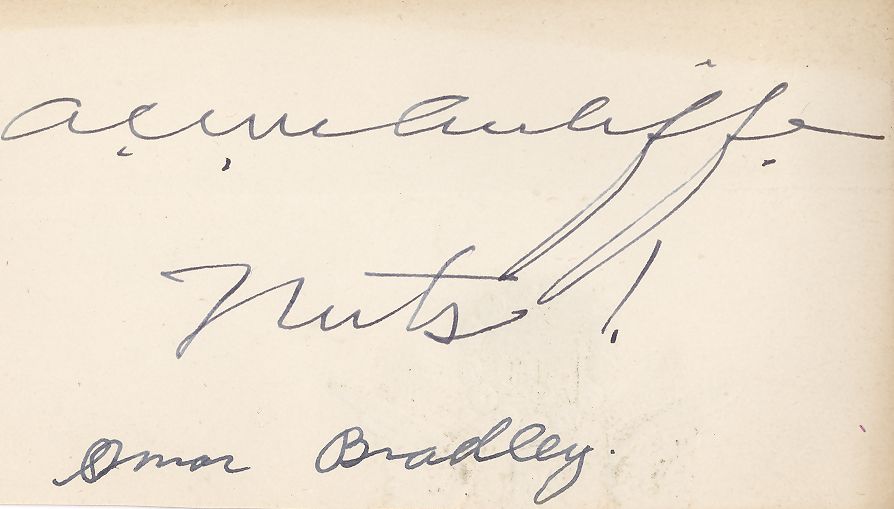 A.C. McAuliffe.
Nuts!
Omar Bradley.